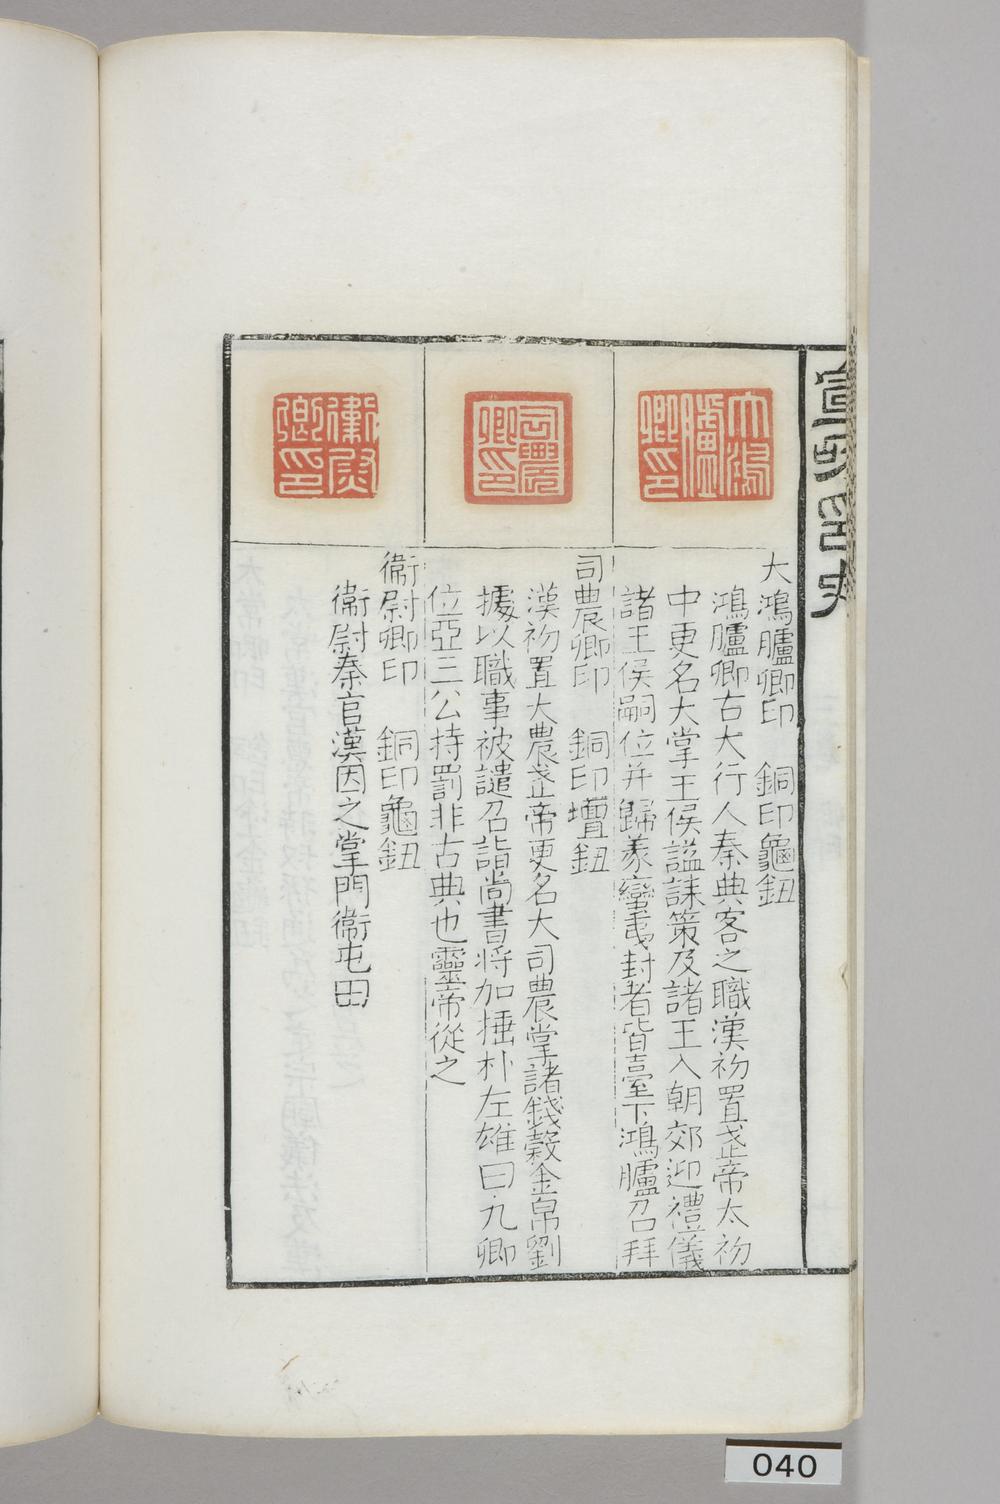 大鴻臚卿印
司農卿印
衛尉卿印
大鴻臚卿印 銅印龜鈕
鴻臚卿古大行人秦典客之職漢初置武帝太初
中更名大掌王侯謚誄策及諸王入朝郊迎禮儀
諸王侯嗣位并歸義蠻夷封者皆臺下鴻臚召拜
司農卿印 銅印壇鈕
漢初置大農武帝更名大司農掌諸錢穀金帛劉
據以職事被譴召詣尚書將加捶朴左雄曰九卿
位亞三公持罰非古典也靈帝從之
衛尉卿印 銅印龜鈕
衛尉秦官漢因之掌門衛屯田
040